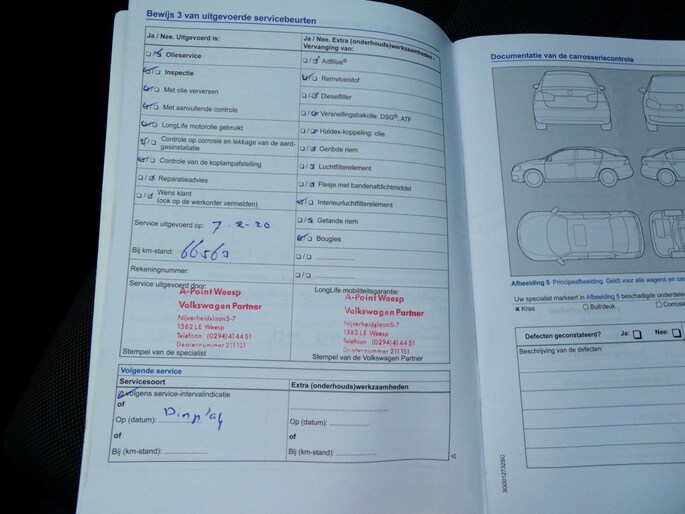 Bewijs 3 van uitgevoerde servicebeurten
Ja / Nee. Uitgevoerd is:
Olieservice
Inspectie
Met olie verversen
Met aanvullende controle
LongLife motorolie gebruikt
Controle op corrosie en lekkage van de aard-
gasinstallatie
Controle van de koplampafstelling
Reparatieadvies
Wens klant
(ook op de werkorder vermelden)
Service uitgevoerd op: 7.2-20
Bij km-stand: 66563
Rekeningnummer:
Service uitgevoerd door:
A-Point Weesp
Volkswagen Partner
Nijverheidslaan 5-7
1382 LE Weesp
Telefoon (0294) 41 44 51
Dealernummer 211151
Stempel van de specialist
Ja / Nee. Extra (onderhouds)werkzaamheden -
Vervanging van:
AdBlue®
Remvloeistof
Dieselfilter
Versnellingsbakolie: DSG®, ATF
Haldex-koppeling: olie
Geribde riem
Luchtfilterelement
Flesje met bandenafdichtmiddel
Interieurluchtfilterelement
Getande riem
Bougies
LongLife mobiliteitsgarantie:
A-Point Weesp
Volkswagen Partner
Nijverheidslaan 5-7
1382 LE Weesp
Telefoon (0294) 41 44 51
Dealernummer 211151
Stempel van de Volkswagen Partner
Volgende service
Servicesoort
Volgens service-intervalindicatie
of
Op (datum): Display
of
Bij (km-stand):
Extra (onderhouds)werkzaamheden
Documentatie van de carrosseriecontrole
Afbeelding 5 Principeafbeelding. Geldt voor alle wagens en car
Uw specialist markeert in Afbeelding 5 beschadigde onderdelen
Kras
Buil/deuk
Corrosie
Defecten geconstateerd? Ja: Nee:
Beschrijving van de defecten:
3G0012732SC